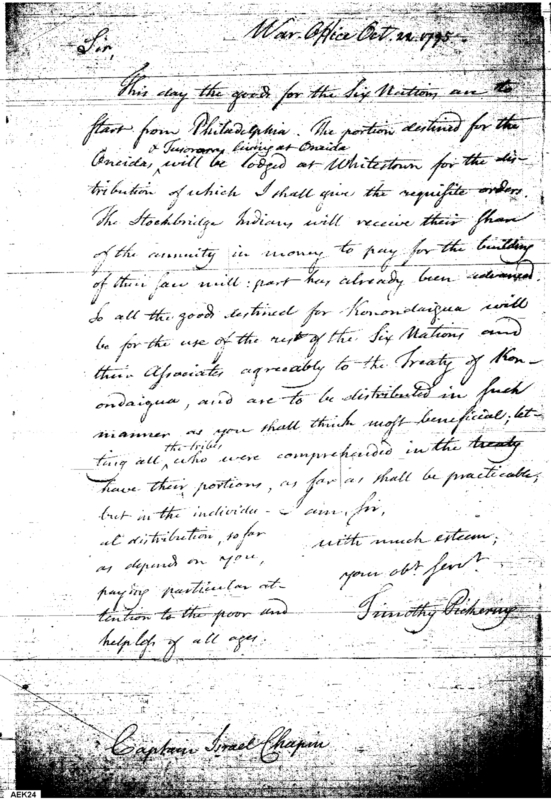 War-Office Oct. 22. 1795.
Sir,
This day the goods for the Six Nations are to
start from Philadelphia. The portion destined for the
& Tusororas living at Oneida
Oneidas, will be lodged at Whitestown for the dis-
tribution of which I shall give the requisite orders.
The Stockbridge Indians will receive their share
of the annuity in money to pay for the building
of their saw mill: part has already been advanced.
So all the goods destined for Konondaigua will
be for the use of the rest of the Six Nations and
their Associates agreeably to the Treaty of Kon-
ondaigua, and are to be distributed in such
manner as you shall think most beneficial; let-
the tribes
ting all who were comprehended in the treaty
have their portions, as far as shall be practicable;
but in the individu-
al distribution, so far
as depends on you,
paying particular at-
tention to the poor and
helpless of all ages.
I am, Sir,
with much esteem,
your obt. servt
Timothy Pickering
Captain Israel Chapin
AEK24